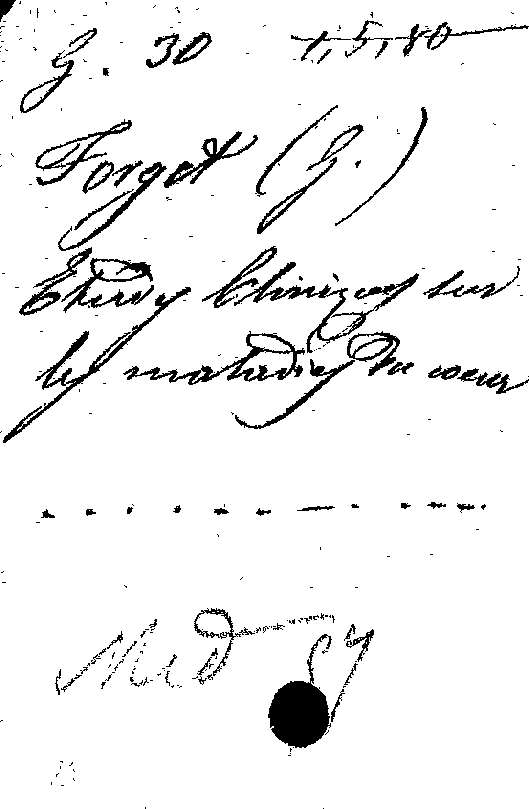 G. 30 1,5,80
Forget (G.)
Etudes Cliniques sur
les maladies du cœur
Med